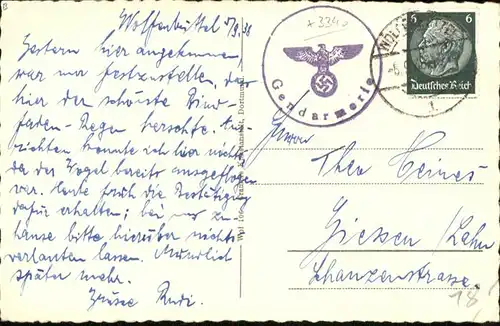 Wolfenbüttel 5/9.38
Gestern hier angekommen,
war nur festzustellen, daß
hier der schönste Bind-
faden-Regen herrschte. Aus-
richten konnte ich hier nichts
da der Vogel bereits ausgeflogen
war. Heute früh die Bestätigung
dafür erhalten; bei uns zu-
hause bitte hierüber nichts
verlauten lassen. Mündlich
später mehr.
Grüsse Rudi.
+3340
Gendarmerie
6 6
Deutsches Reich
Herrn
Theo Heines
Giessen/Lahn
Schanzenstrasse 18